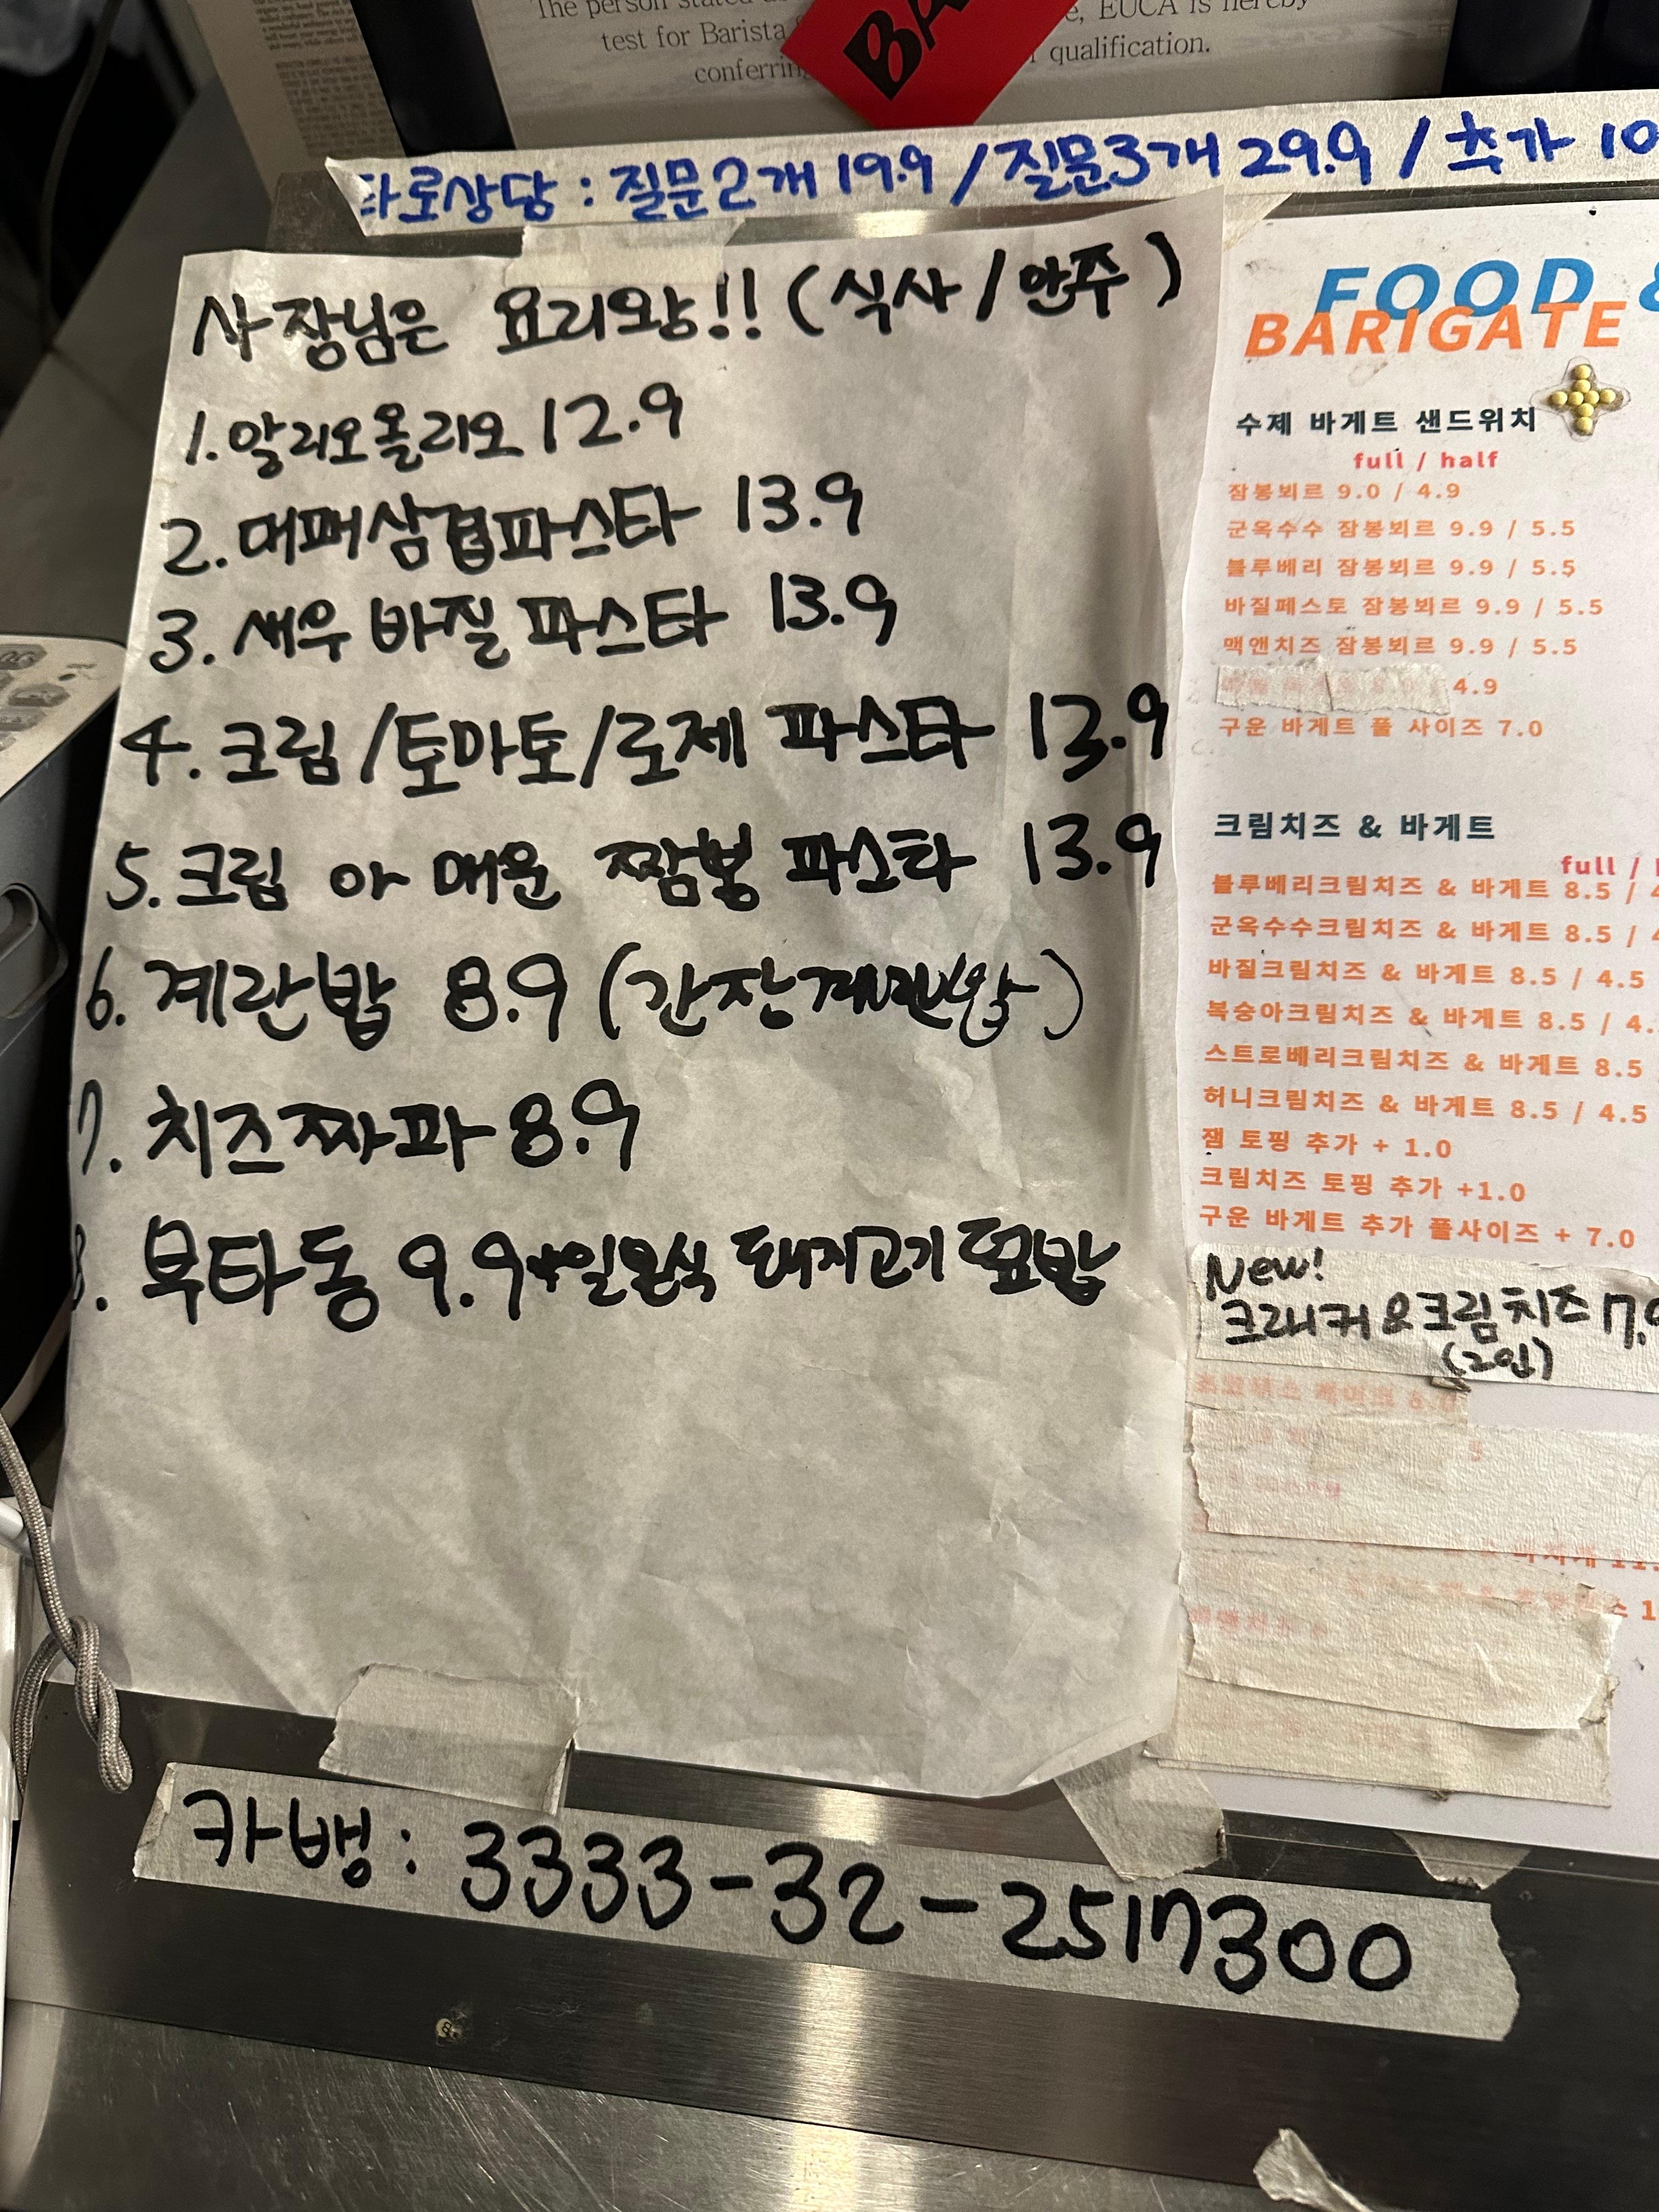 The person stated
test for Barista
conferring
, EUCA is hereby
qualification.
타로상담 : 질문2개 19.9 / 질문3개 29.9 / 추가 10
사장님은 요리왕!! (식사/안주)
1. 알리오올리오 12.9
2. 대패삼겹파스타 13.9
3. 새우 바질 파스타 13.9
4. 크림/토마토/로제 파스타 13.9
5. 크림 아 매운 짬뽕 파스타 13.9
6. 계란밥 8.9 (간장계란밥)
7. 치즈짜파 8.9
8. 부타동 9.9 일본식 돼지고기 덮밥
FOOD &
BARIGATE
수제 바게트 샌드위치
full / half
잠봉뵈르 9.0 / 4.9
군옥수수 잠봉뵈르 9.9 / 5.5
블루베리 잠봉뵈르 9.9 / 5.5
바질페스토 잠봉봐르 9.9 / 5.5
맥앤치즈 잠봉뵈르 9.9 / 5.5
4.9
구운 바게트 풀 사이즈 7.0
크림치즈 & 바게트
full /
블루베리크림치즈 & 바게트 8.5 / 4
군옥수수크림치즈 & 바게트 8.5 / 4
바질크림치즈 & 바게트 8.5 / 4.5
복숭아크림치즈 & 바게트 8.5 / 4.
스트로베리크림치즈 & 바게트 8.5
허니크림치즈 & 바게트 8.5 / 4.5
잼 토핑 추가 + 1.0
크림치즈 토핑 추가 +1.0
구운 바게트 추가 풀사이즈 + 7.0
New!
크래커&크림치즈 7.9
(2인)
카뱅 : 3333-32-2517300